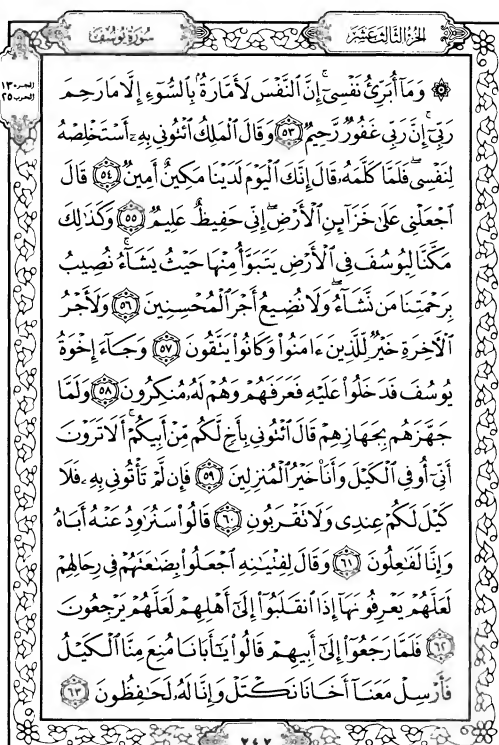 سُورَةُ يُوسُفَ
الجُزْءُ الثَّالِثَ عَشَرَ
الجزء ١٣
الحزب ٢٥
۞ وَمَآ أُبَرِّئُ نَفۡسِيٓۚ إِنَّ ٱلنَّفۡسَ لَأَمَّارَةُۢ بِٱلسُّوٓءِ إِلَّا مَا رَحِمَ
رَبِّيٓۚ إِنَّ رَبِّي غَفُورٞ رَّحِيمٞ ٥٣ وَقَالَ ٱلۡمَلِكُ ٱئۡتُونِي بِهِۦٓ أَسۡتَخۡلِصۡهُ
لِنَفۡسِيۖ فَلَمَّا كَلَّمَهُۥ قَالَ إِنَّكَ ٱلۡيَوۡمَ لَدَيۡنَا مَكِينٌ أَمِينٞ ٥٤ قَالَ
ٱجۡعَلۡنِي عَلَىٰ خَزَآئِنِ ٱلۡأَرۡضِۖ إِنِّي حَفِيظٌ عَلِيمٞ ٥٥ وَكَذَٰلِكَ
مَكَّنَّا لِيُوسُفَ فِي ٱلۡأَرۡضِ يَتَبَوَّأُ مِنۡهَا حَيۡثُ يَشَآءُۚ نُصِيبُ
بِرَحۡمَتِنَا مَن نَّشَآءُۖ وَلَا نُضِيعُ أَجۡرَ ٱلۡمُحۡسِنِينَ ٥٦ وَلَأَجۡرُ
ٱلۡأٓخِرَةِ خَيۡرٞ لِّلَّذِينَ ءَامَنُواْ وَكَانُواْ يَتَّقُونَ ٥٧ وَجَآءَ إِخۡوَةُ
يُوسُفَ فَدَخَلُواْ عَلَيۡهِ فَعَرَفَهُمۡ وَهُمۡ لَهُۥ مُنكِرُونَ ٥٨ وَلَمَّا
جَهَّزَهُم بِجَهَازِهِمۡ قَالَ ٱئۡتُونِي بِأَخٖ لَّكُم مِّنۡ أَبِيكُمۡۚ أَلَا تَرَوۡنَ
أَنِّيٓ أُوفِي ٱلۡكَيۡلَ وَأَنَا۠ خَيۡرُ ٱلۡمُنزِلِينَ ٥٩ فَإِن لَّمۡ تَأۡتُونِي بِهِۦ فَلَا
كَيۡلَ لَكُمۡ عِندِي وَلَا تَقۡرَبُونِ ٦٠ قَالُواْ سَنُرَٰوِدُ عَنۡهُ أَبَاهُ
وَإِنَّا لَفَٰعِلُونَ ٦١ وَقَالَ لِفِتۡيَٰنِهِ ٱجۡعَلُواْ بِضَٰعَتَهُمۡ فِي رِحَالِهِمۡ
لَعَلَّهُمۡ يَعۡرِفُونَهَآ إِذَا ٱنقَلَبُوٓاْ إِلَىٰٓ أَهۡلِهِمۡ لَعَلَّهُمۡ يَرۡجِعُونَ
٦٢ فَلَمَّا رَجَعُوٓاْ إِلَىٰٓ أَبِيهِمۡ قَالُواْ يَٰٓأَبَانَا مُنِعَ مِنَّا ٱلۡكَيۡلُ
فَأَرۡسِلۡ مَعَنَآ أَخَانَا نَكۡتَلۡ وَإِنَّا لَهُۥ لَحَٰفِظُونَ ٦٣
٢٤٢